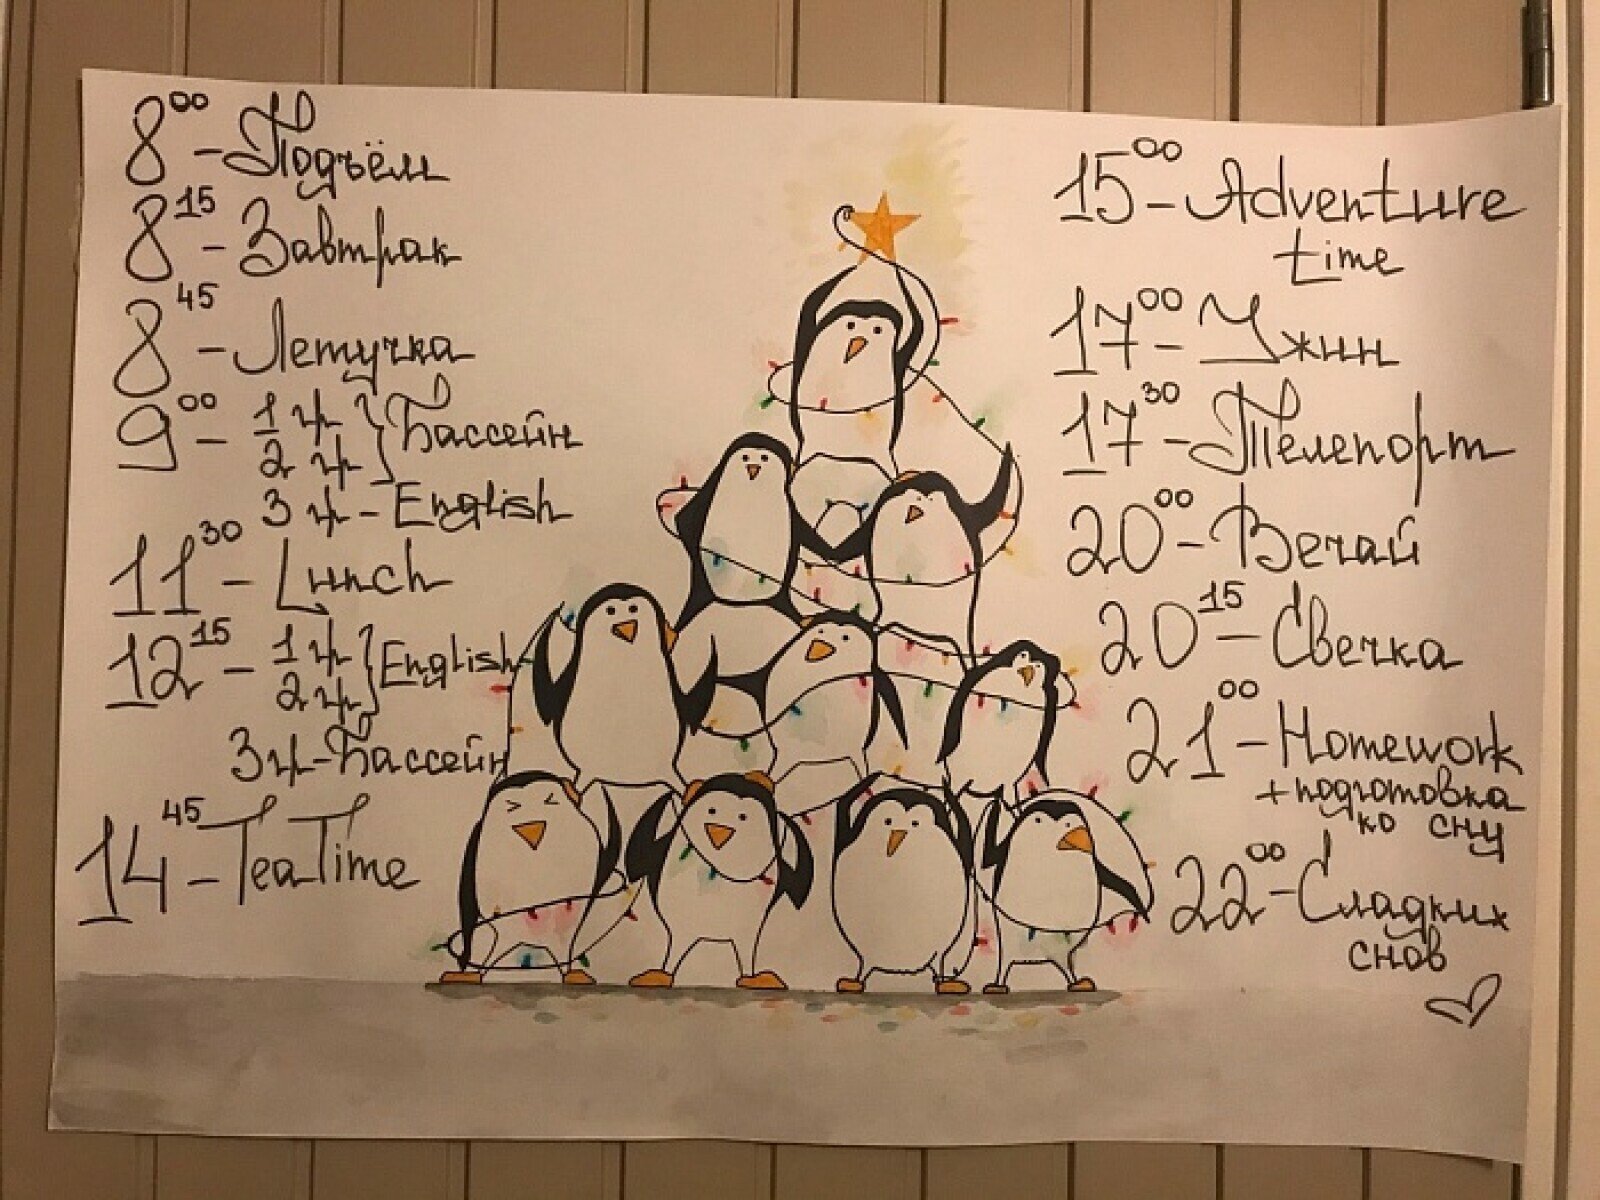 8⁰⁰ - Подъём
8¹⁵ - Завтрак
8⁴⁵ - Летучка
9⁰⁰ - 1 гр } Бассейн
2 гр
3 гр - English
11³⁰ - Lunch
12¹⁵ - 1 гр } English
2 гр
3 гр - Бассейн
14⁴⁵ - Tea Time
15⁰⁰ - Adventure
time
17⁰⁰ - Ужин
17³⁰ - Телепорт
20⁰⁰ - Вечай
20¹⁵ - Свечка
21⁰⁰ - Homework
+ подготовка
ко сну
22⁰⁰ - Сладких
снов